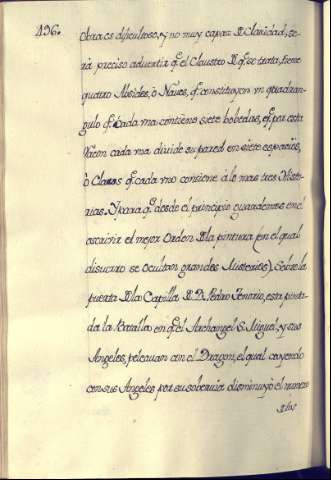 196.
obra es dificultoso, y no muy capaz de Claridad, se-
rà preciso advertir q.e el Claustro de q.e se trata, tiene
quatro Absides, ò Naves, q.e constituyen un quadran-
gulo q.e cada una contiene siete bobedas, q.e por esta
razon cada una divide su pared en siete espacios,
ò Claros q.e cada uno contiene à lo mas tres Histo-
rias. Y para q.e desde el principio guardemos en el
escrivir el mejor Orden de la pintura (en el qual
discurro se ocultan grandes Misterios). Sobre la
puerta de la Capilla de D. Pedro Tenorio, esta pinta-
da la Batalla en q.e el Archangel S. Miguel, y sus
Angeles, peleavan con el Dragon, el qual cayendo
con sus Angeles por su sobervia disminuyò el numero